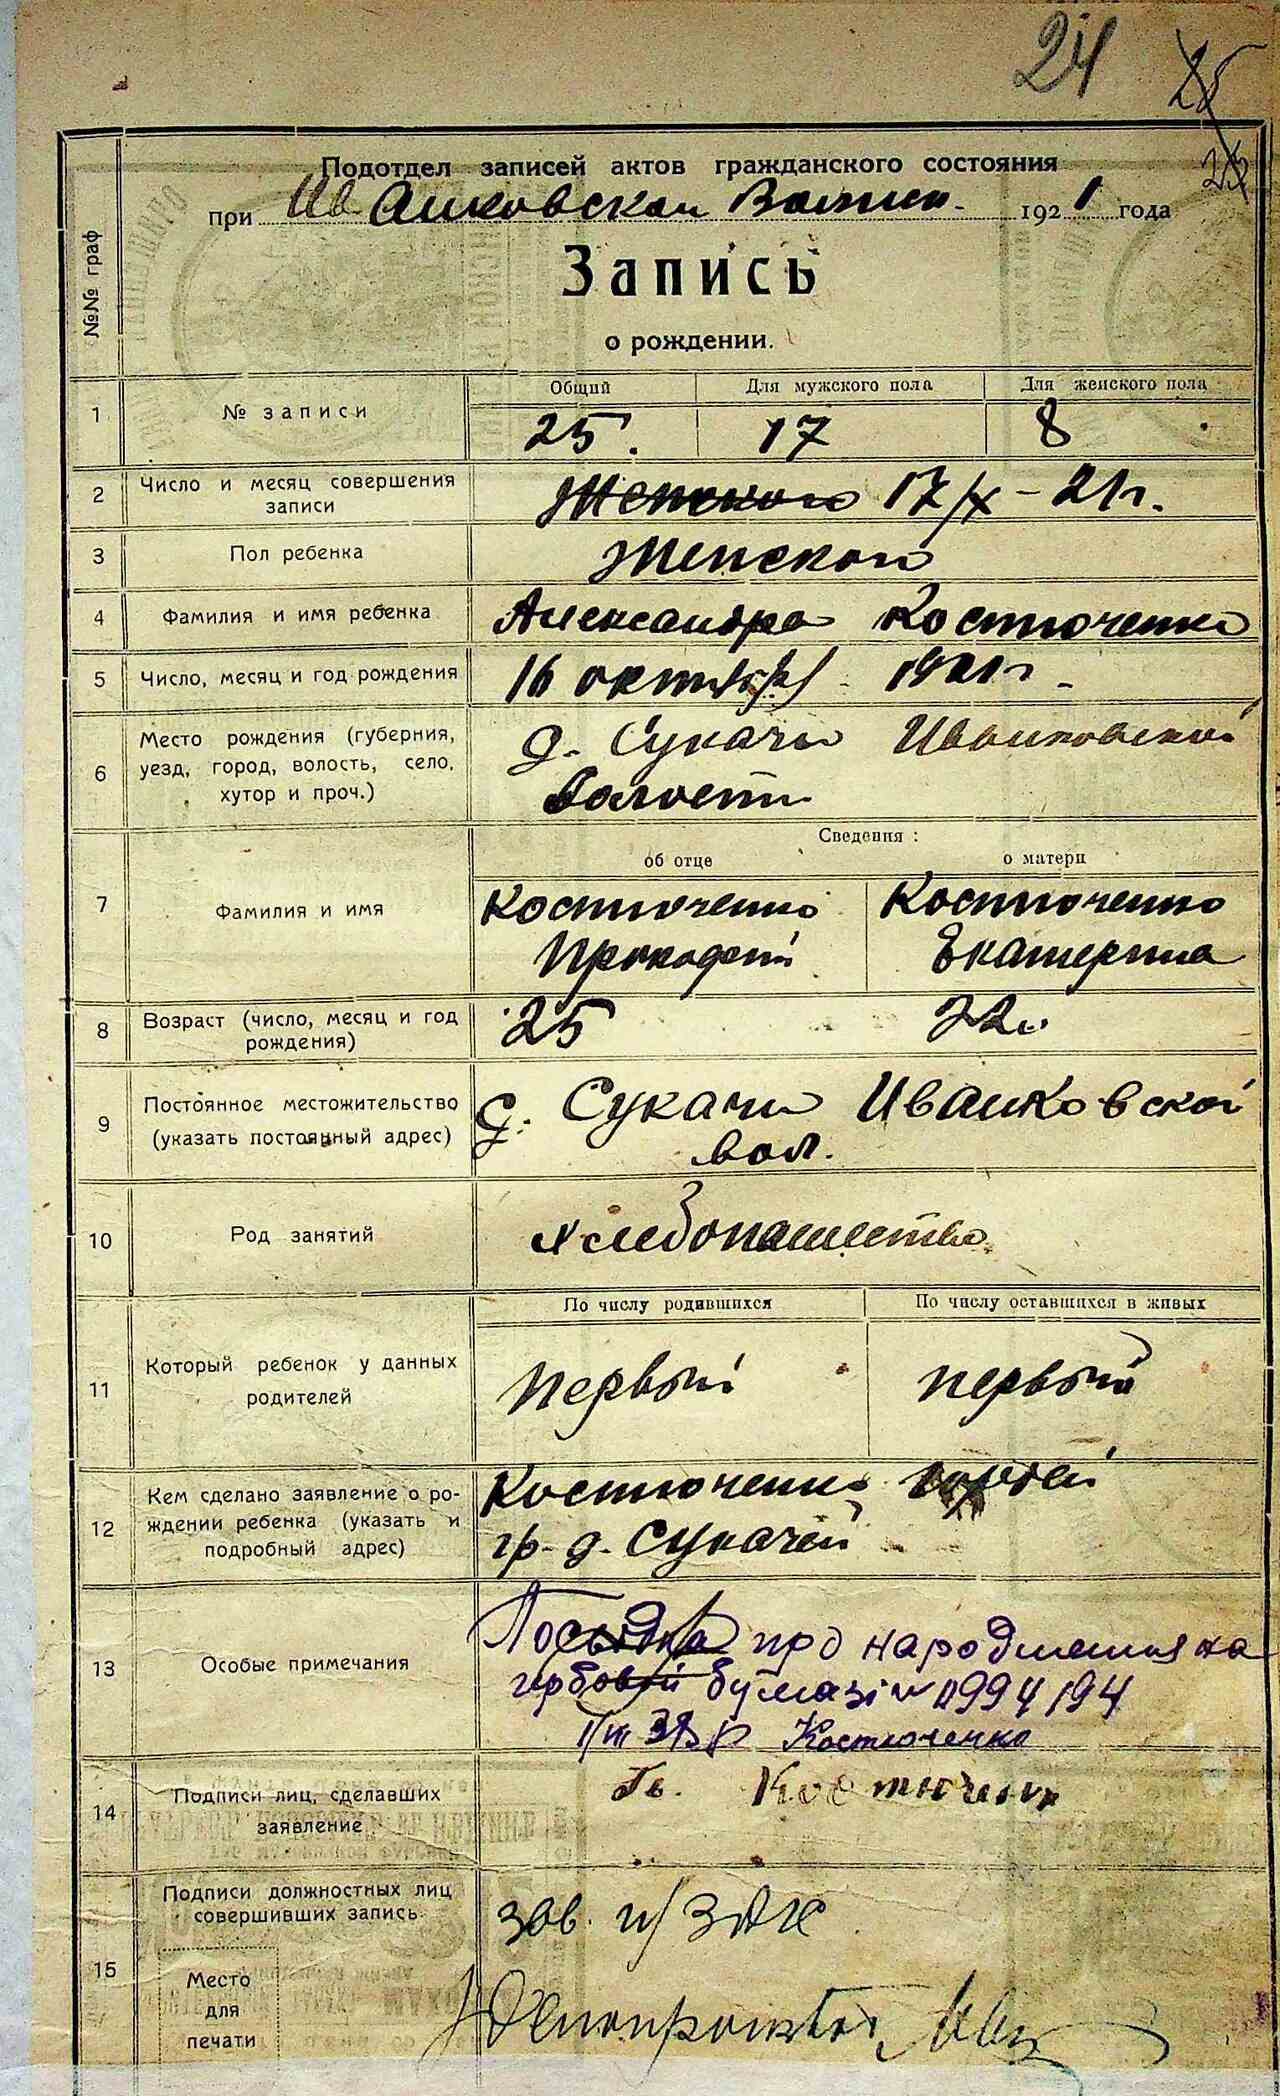 24
25
Подотдел записей актов гражданского состояния
при Иванковской Волисп. 1921 года
№№ граф
Запись
о рождении.
1 № записи
Общий Для мужского пола Для женского пола
25. 17 8
2 Число и месяц совершения записи
Женского 17/X - 21 г.
3 Пол ребенка Женского
4 Фамилия и имя ребенка Александра Костюченко
5 Число, месяц и год рождения 16 октября 1921 г
6 Место рождения (губерния,
уезд, город, волость, село,
хутор и проч.)
д. Сукачи Иванковской
волости
Сведения:
об отце о матери
7 Фамилия и имя
Костюченко Костюченко
Прокофий Екатерина
8 Возраст (число, месяц и год
рождения)
25 22
9 Постоянное местожительство
(указать постоянный адрес)
с. Сукачи Иванковской
вол.
10 Род занятий хлебопашество
По числу родившихся По числу оставшихся в живых
11 Который ребенок у данных
родителей
первый первый
12 Кем сделано заявление о ро-
ждении ребенка (указать и
подробный адрес)
Костюченко
гр. д. Сукачей
13 Особые примечания
про народження на
гербовій бумазі № 0994194
Костюченко
14 Подписи лиц, сделавших
заявление
15 Подписи должностных лиц
совершивших запись
зав. п/ЗАГС
Место
для
печати